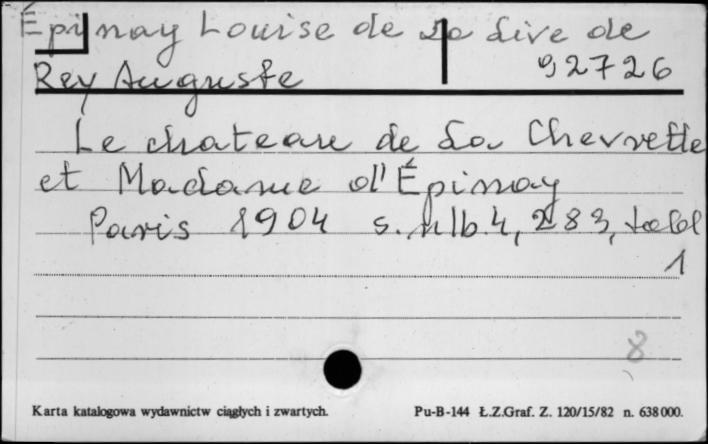 Épinay Louise de La Live de
Rey Auguste 92726
Le chateau de La Chevrette
et Madame d'Épinay
Paris 1904 s. nlb. 4, 283, tabl
1
8
Karta katalogowa wydawnictw ciągłych i zwartych. Pu-B-144 Ł.Z.Graf. Z. 120/15/82 n. 638000.